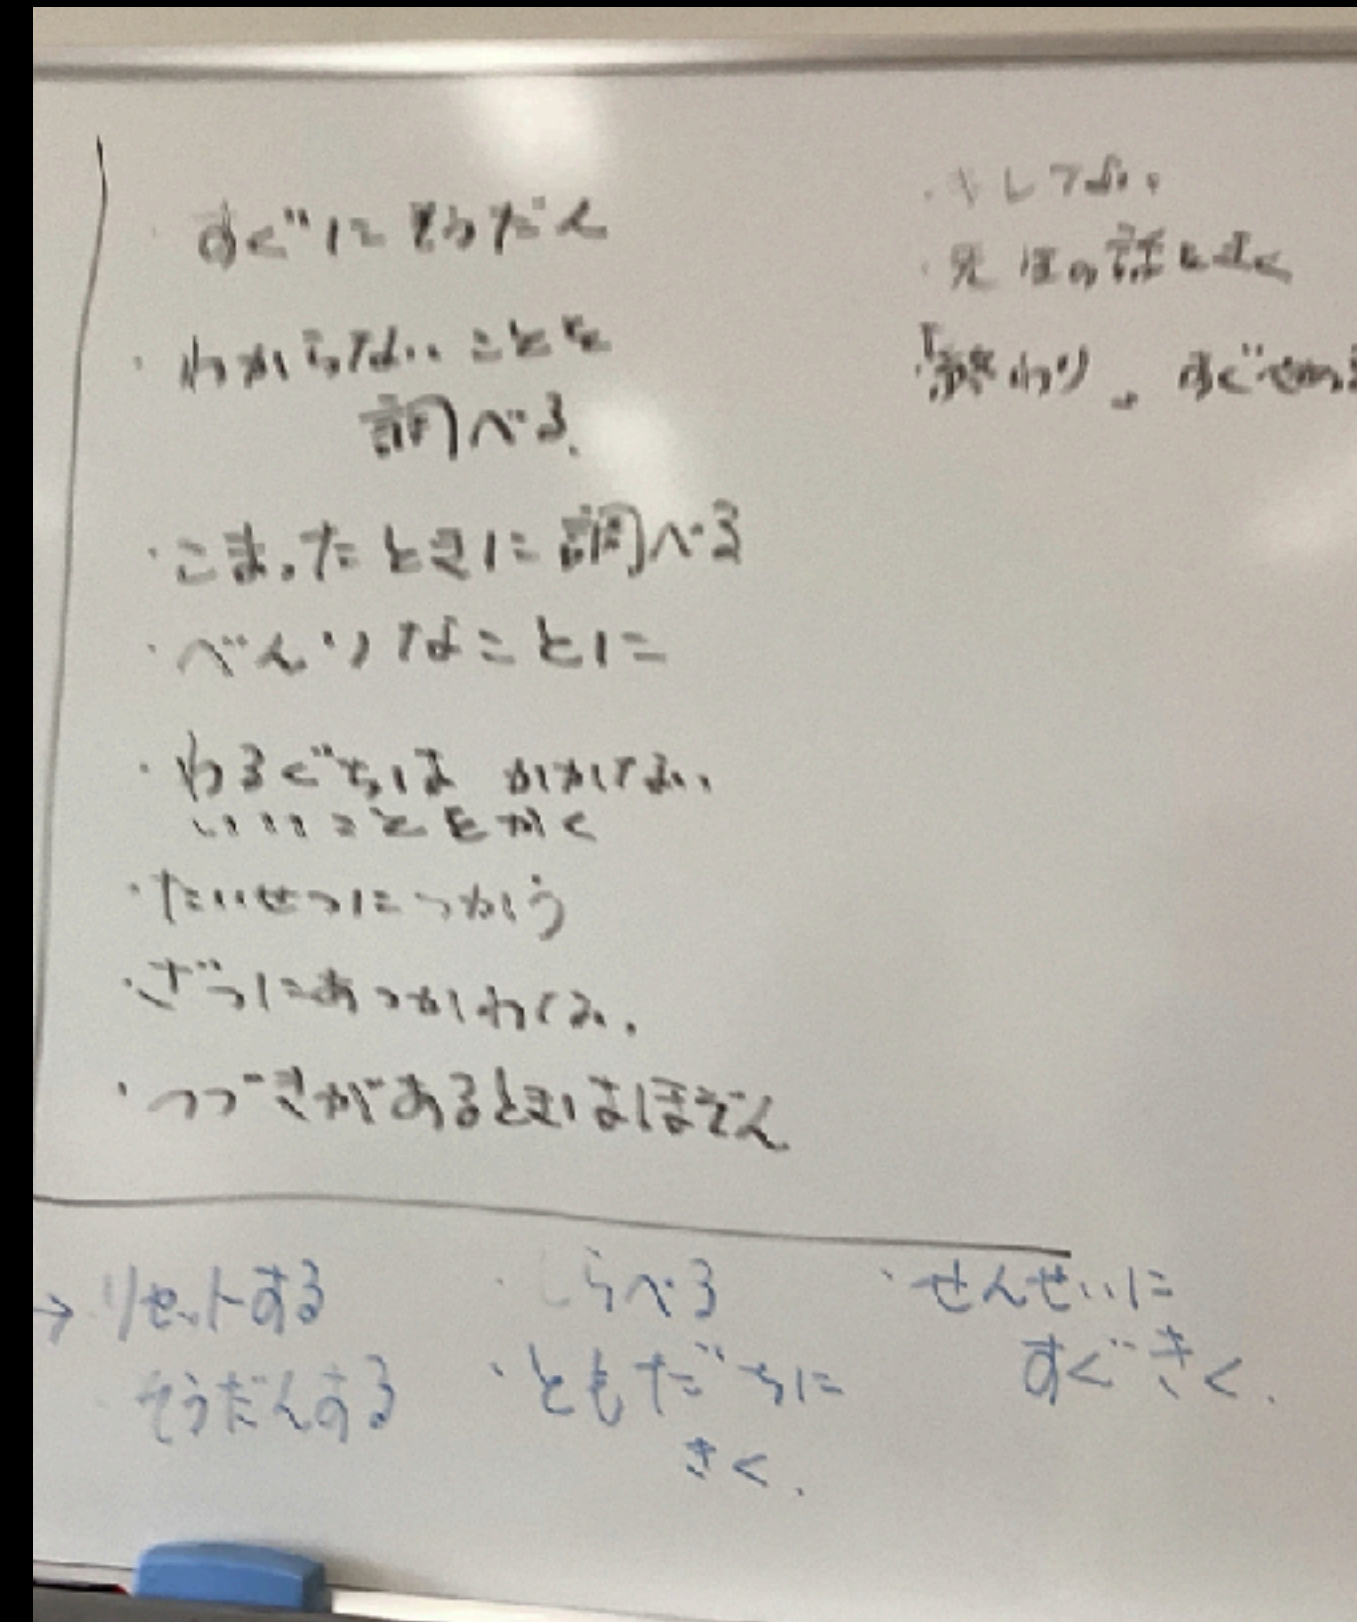 すぐにそうだん
・わからないことを
調べる.
・こまったときに調べる
・べんりなことに
・わるぐちは かかない
いいことをかく
・たいせつにつかう
・ざつにあつかわない.
・つづきがあるときはほぞん
の話を
終わり すぐ
→ リセットする
そうだんする
・しらべる
・ともだちに
きく.
・せんせいに
すぐきく.